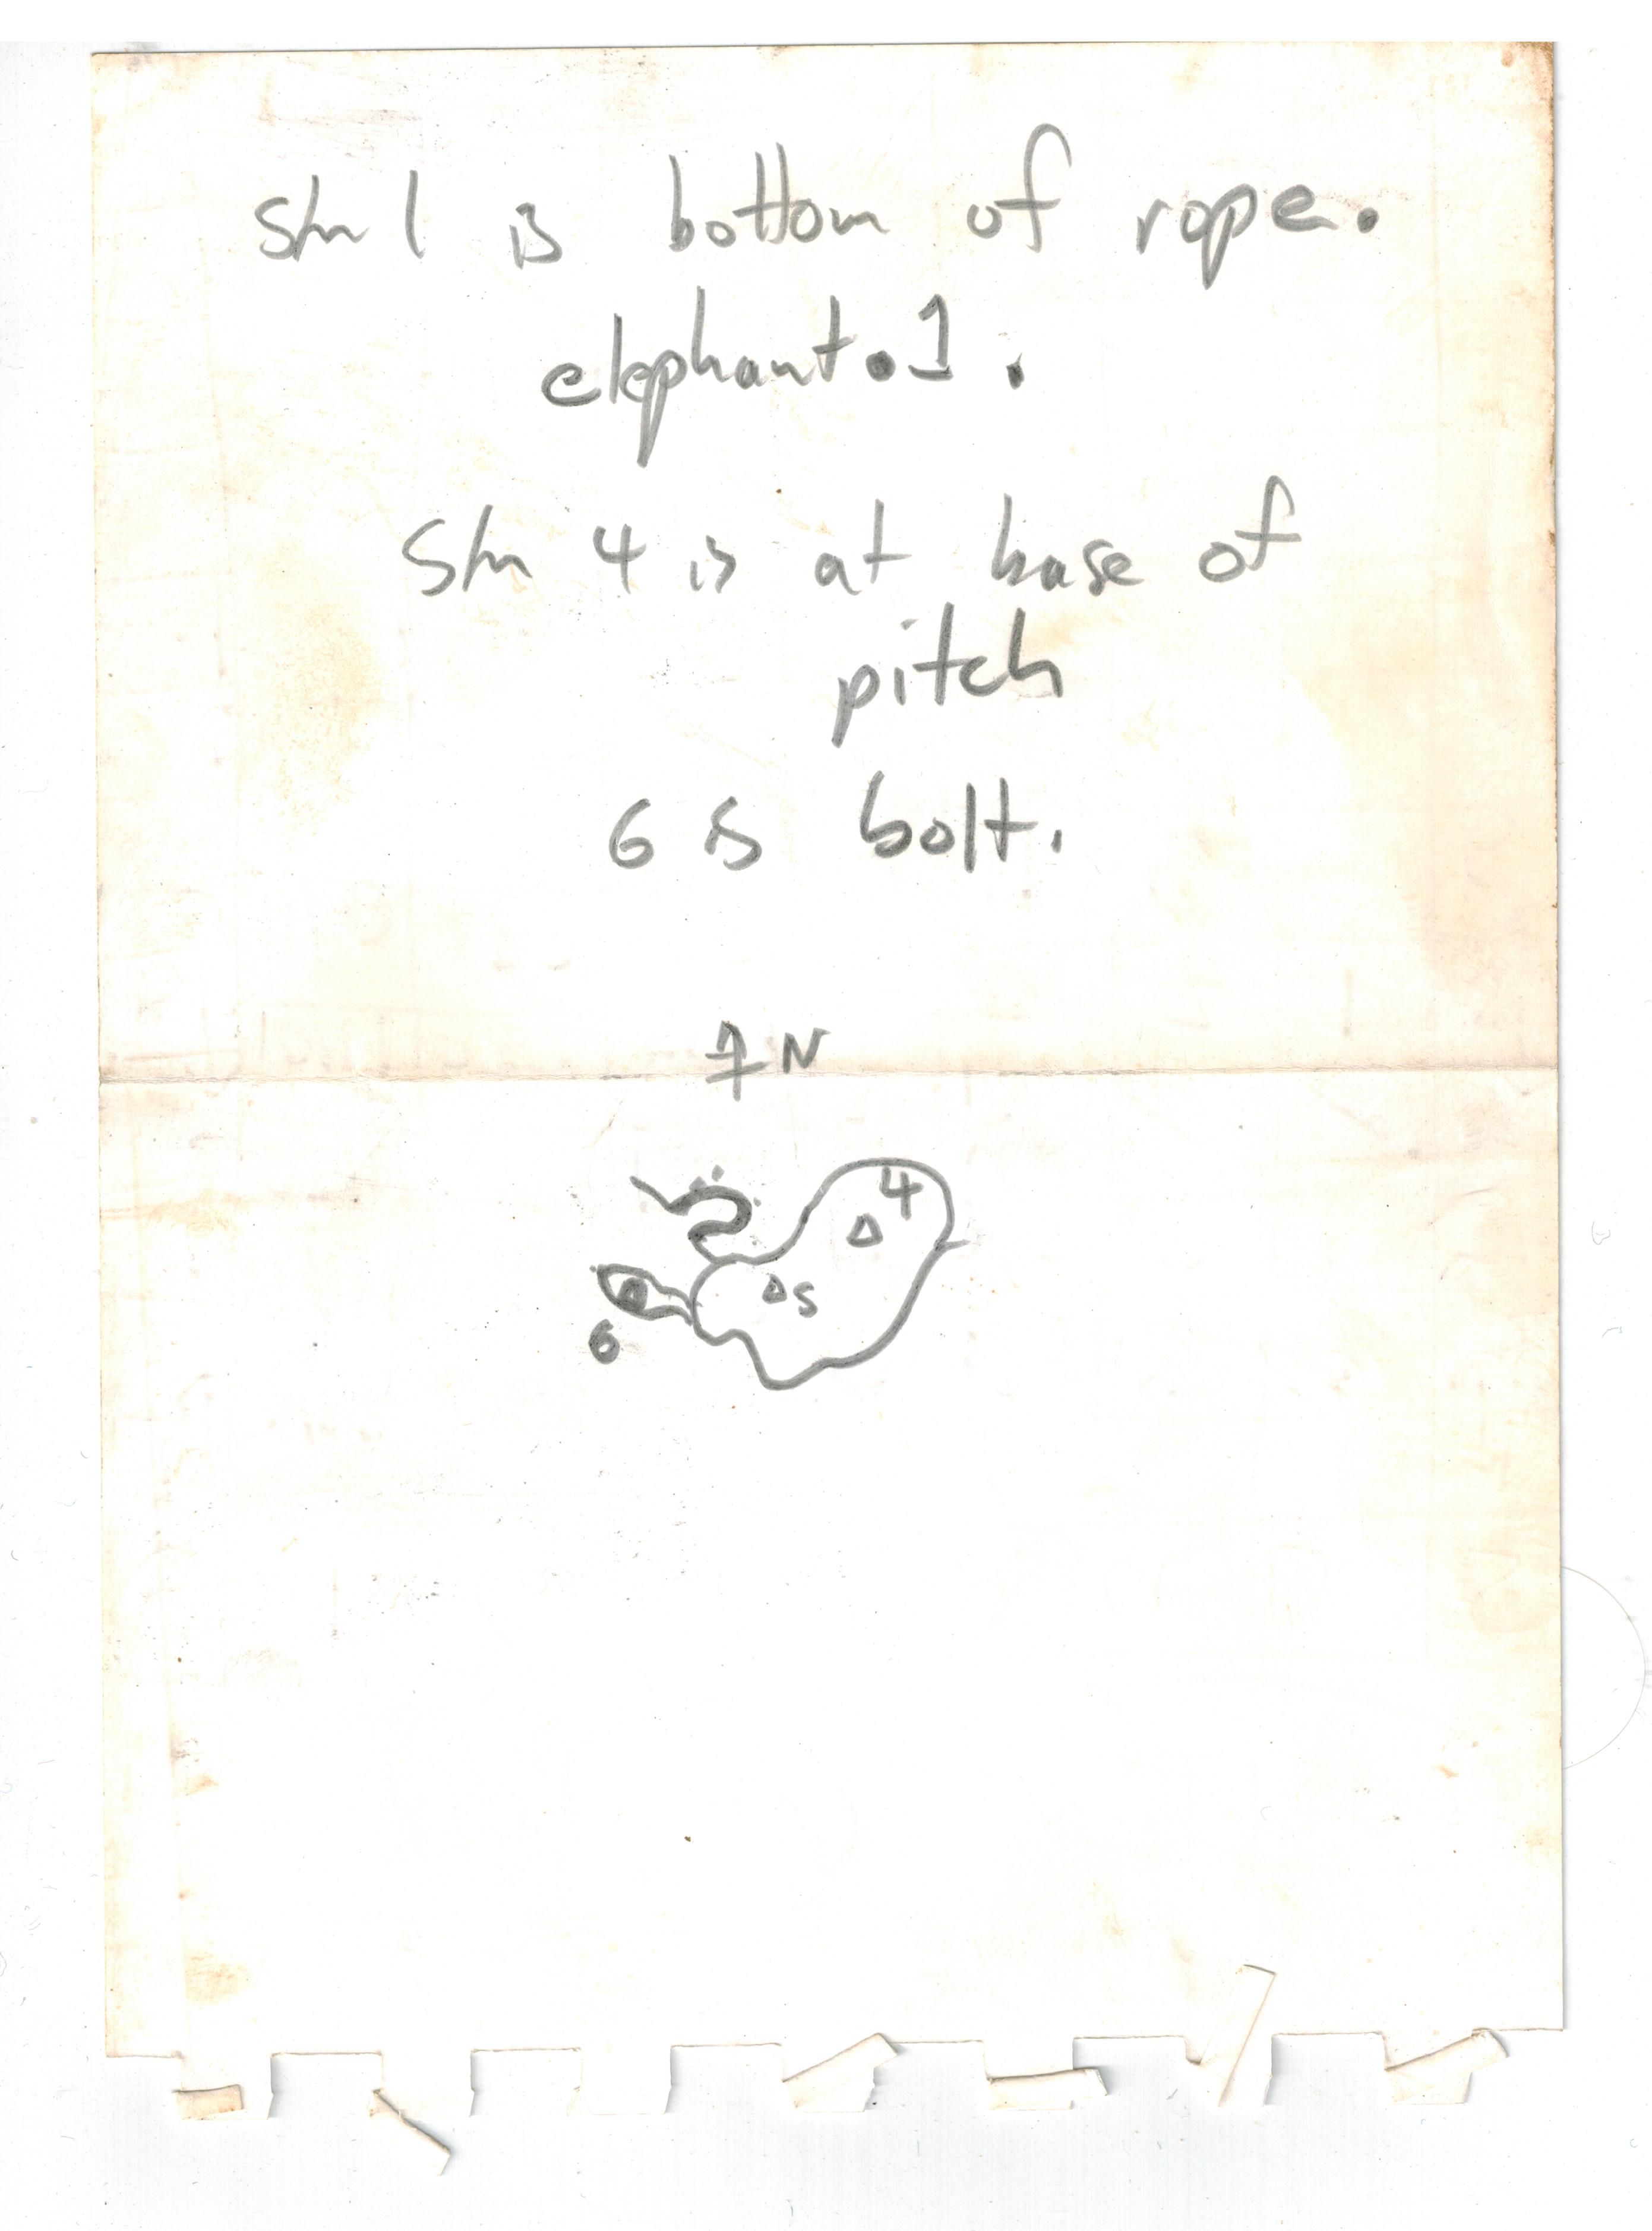 Stn 1 is bottom of rope.
elephant.1.
Stn 4 is at base of
pitch
6 is bolt.
N
4
5
6